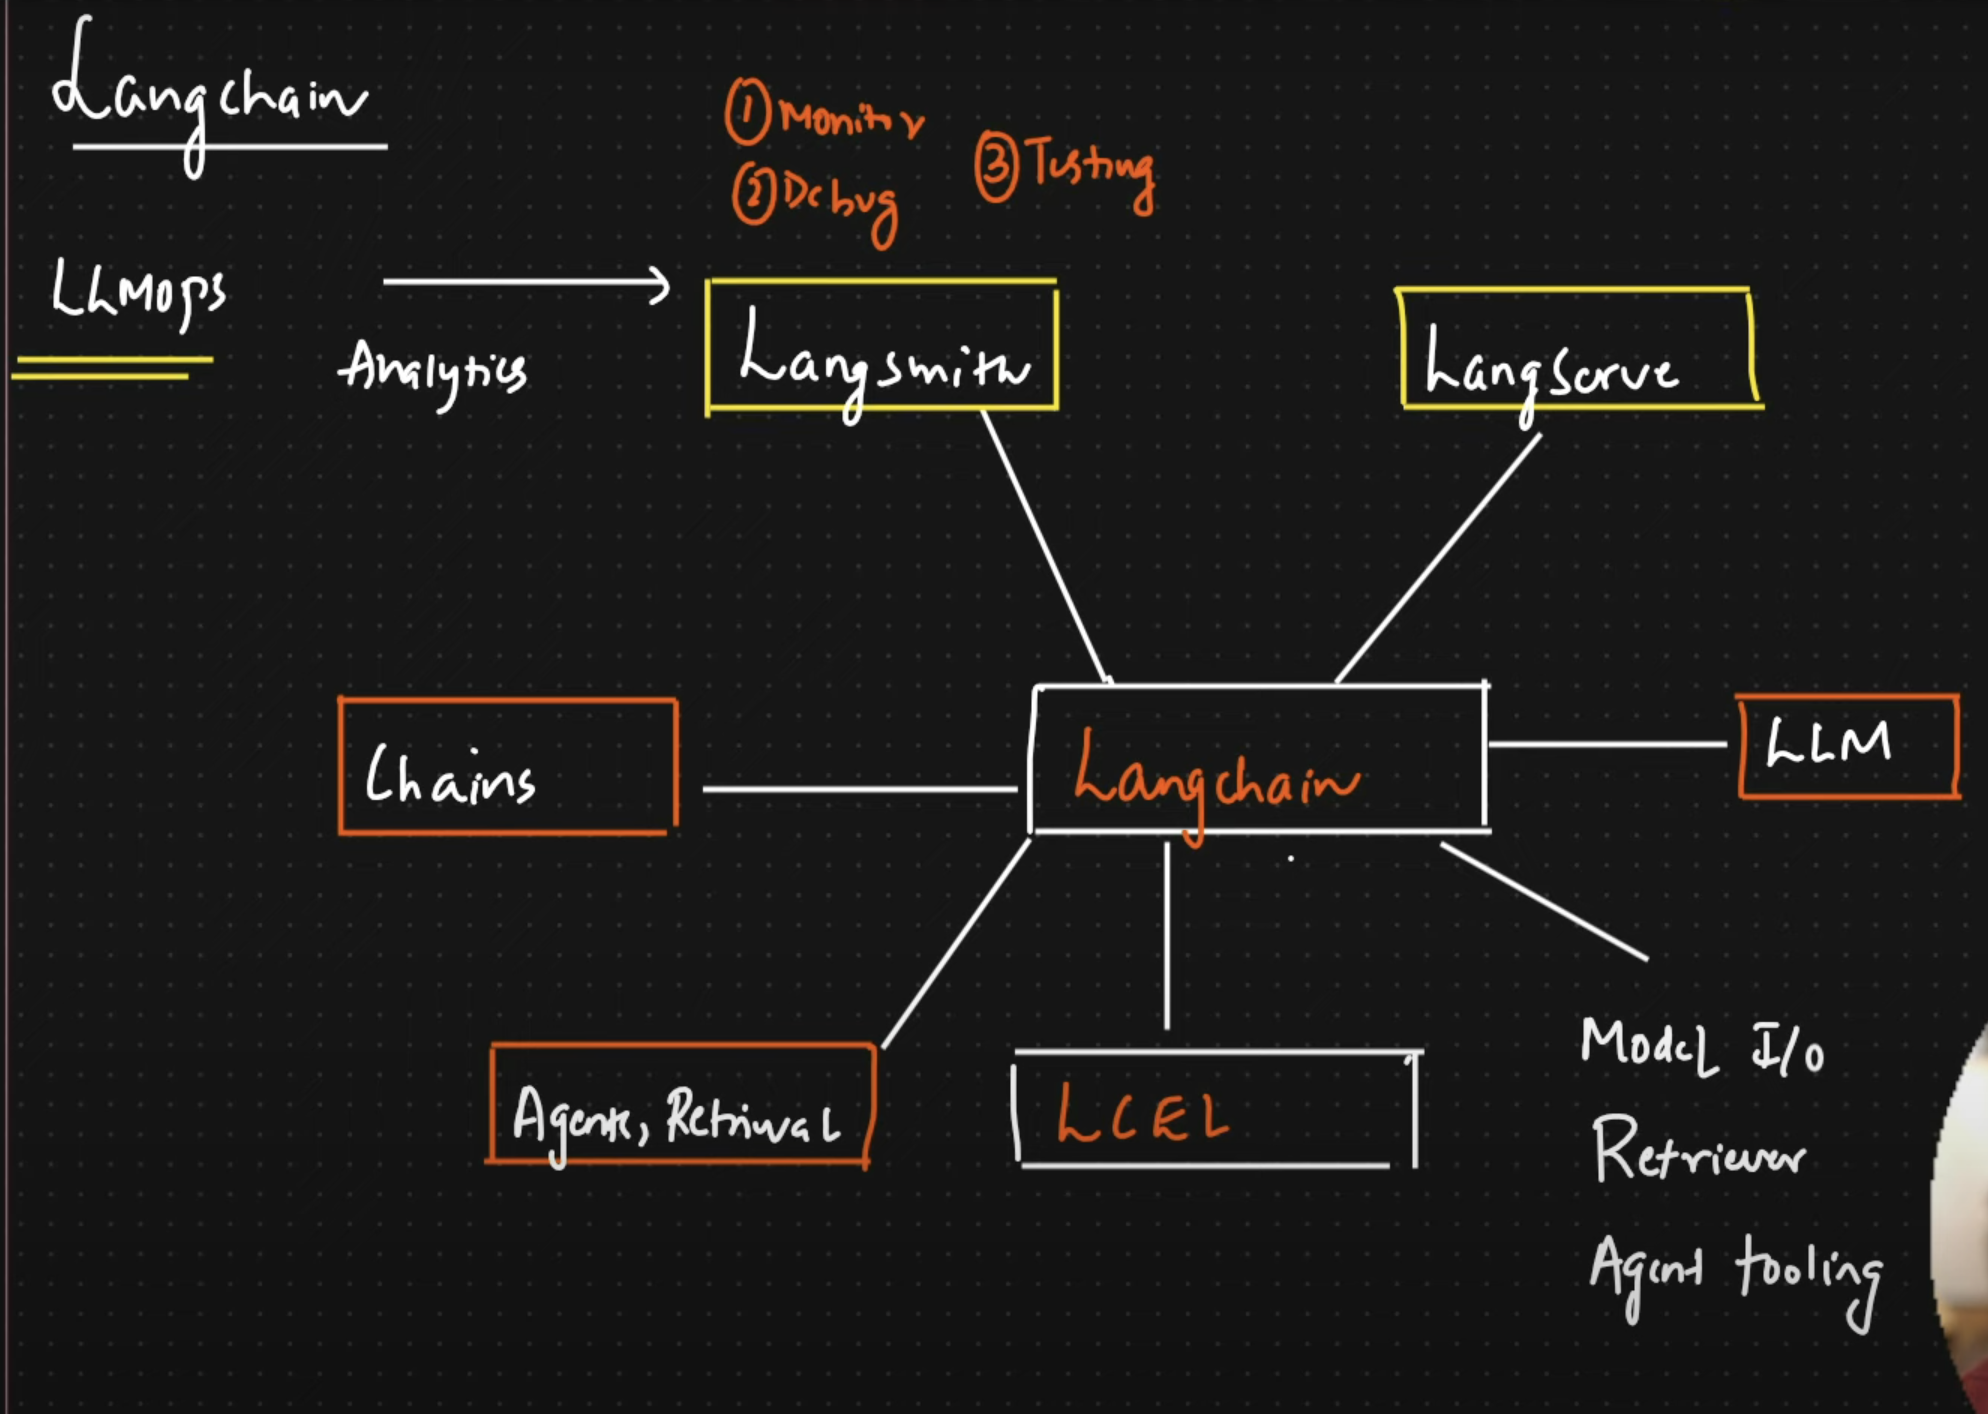 Langchain
① Monitor
② Debug
③ Testing
LLMops
Analytics
Langsmith
LangServe
Chains
Langchain
LLM
Agents, Retrival
LCEL
Model I/O
Retriever
Agent tooling